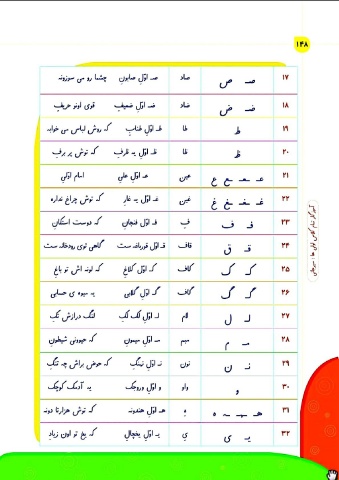 ۱۴۸
۱۷ صـ ص صاد صـ اوّلِ صابون چشما رو می سوزونه
۱۸ ضـ ض ضاد ضـ اوّلِ ضعیف قوی اونو حریفه
۱۹ ط طا طـ اوّلِ طناب که روش لباس می خوابه
۲۰ ظ ظا ظـ اوّلِ یه ظرف که توش پر برف
۲۱ عـ ـعـ ـع ع عین عـ اوّلِ علی امام اوّلی
۲۲ غـ ـغـ ـغ غ غین غـ اوّلِ یه غار که توش چراغ نداره
۲۳ فـ ف فـ اوّلِ فنجان که دوست استکان
۲۴ قـ ق قاف قـ اوّلِ قورباغه ست گاهی توی رودخانه ست
۲۵ کـ ک کاف کـ اوّلِ کلاغ که لونه اش تو باغ
۲۶ گـ گ گاف گـ اوّلِ گلابی یه میوه ی حسابی
۲۷ لـ ل لام لـ اوّلِ لک لک لنگ درازش تک
۲۸ مـ م میم مـ اوّلِ میمون که حیوونی شیطون
۲۹ نـ ن نون نـ اوّلِ نهنگ که حوض براش چه تنگ
۳۰ و واو و اوّلِ وروجک یه آدمک کوچک
۳۱ هـ ـهـ ـه ه هـ اوّلِ هندونه که توش هزارتا دونه
۳۲ یـ ی ی یـ اوّلِ یخچال که یخ تو اون زیاد